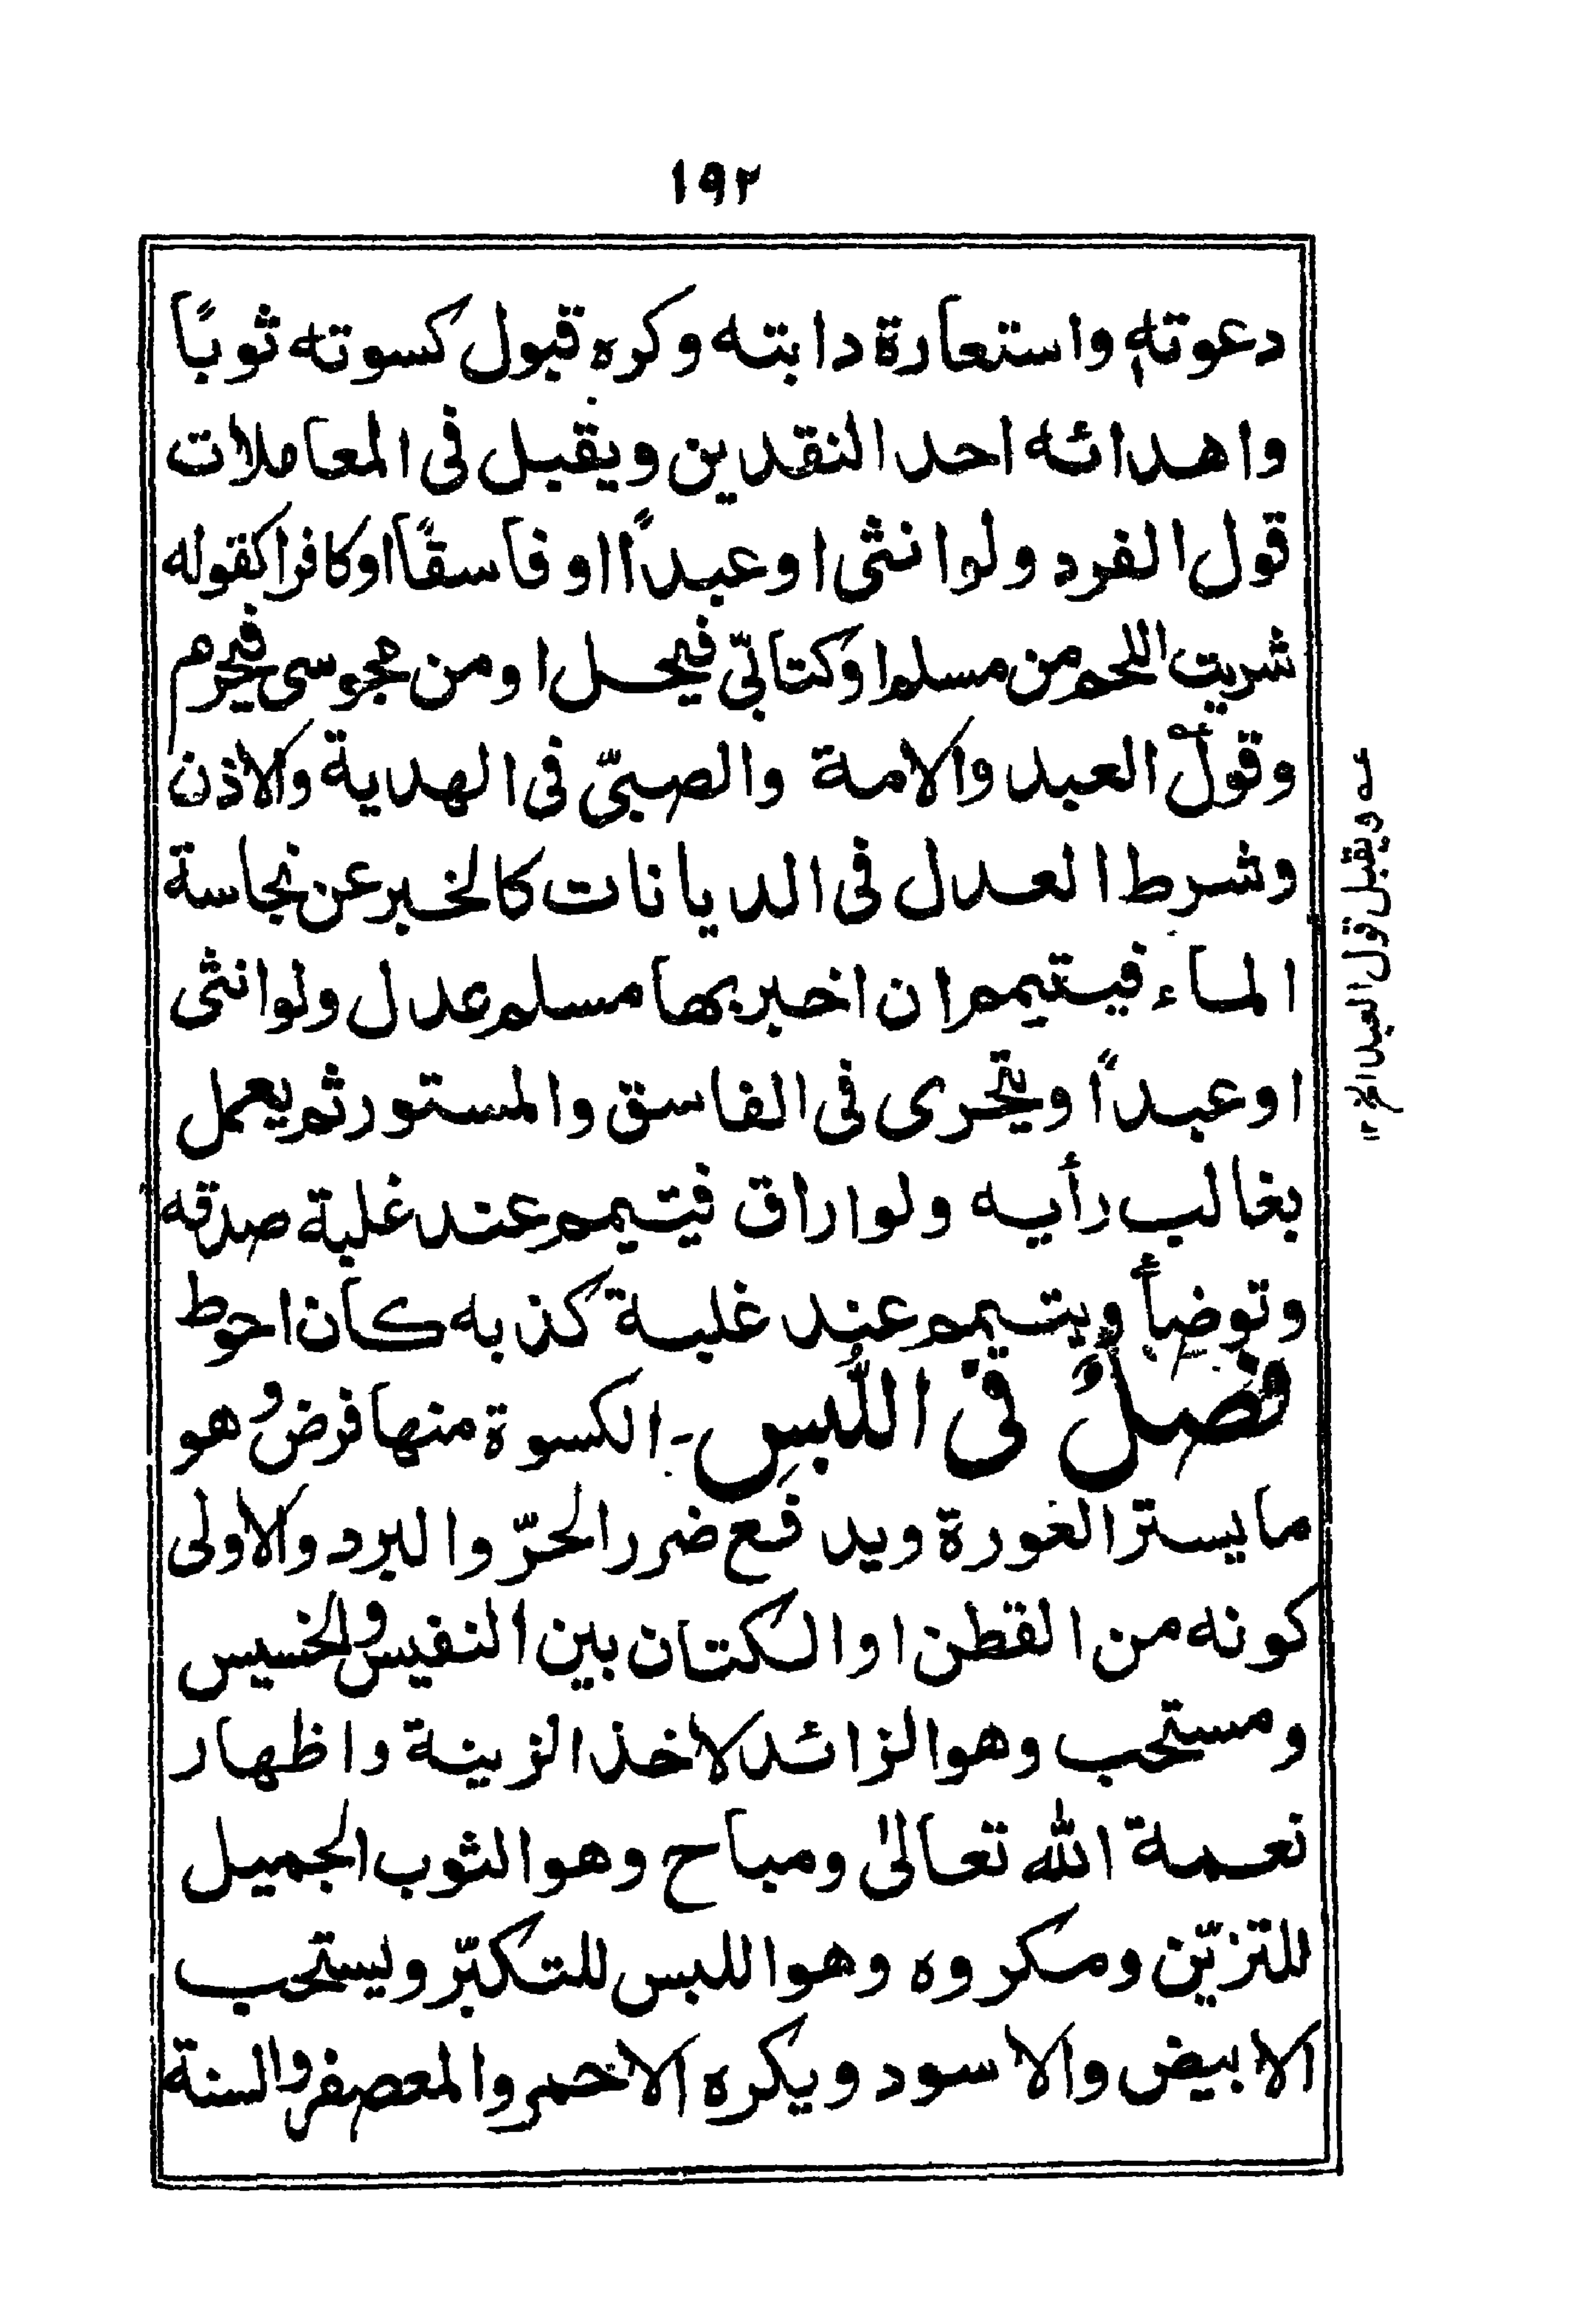 ١٩٢
دعوته واستعارة دابته وكره قبول كسوته ثوبًا
واهدائه احد النقدين ويقبل فى المعاملات
قول الفرد ولو انثى او عبدًا او فاسقًا او كافرا كقوله
شريت اللحم من مسلم او كتابىّ فيحل او من مجوسى فيحرم
وقول العبد والامة والصبىّ فى الهدية والاذن
وشرط العدل فى الديانات كالخبر عن نجاسة
الماء فيتيمم ان اخبر بها مسلم عدل ولو انثى
او عبدًا ويتحرى فى الفاسق والمستور ثم يعمل
بغالب رأيه ولو اراق فيتيمم عند غلبة صدقه
وتوضأ ويتيمم عند غلبة كذبه كان احوط
فصلٌ فى اللُّبس - الكسوة منها فرض وهو
ما يستر العورة ويدفع ضرر الحرّ والبرد والاولى
كونه من القطن او الكتان بين النفيس والخسيس
ومستحب وهو الزائد لاخذ الزينة واظهار
نعمة الله تعالىٰ ومباح وهو الثوب الجميل
للتزيّن ومكروه وهو اللبس للتكبّر ويستحب
الابيض والاسود ويكره الاحمر والمعصفر والسنة
عه ويقبل قول العبد الخ ١٢